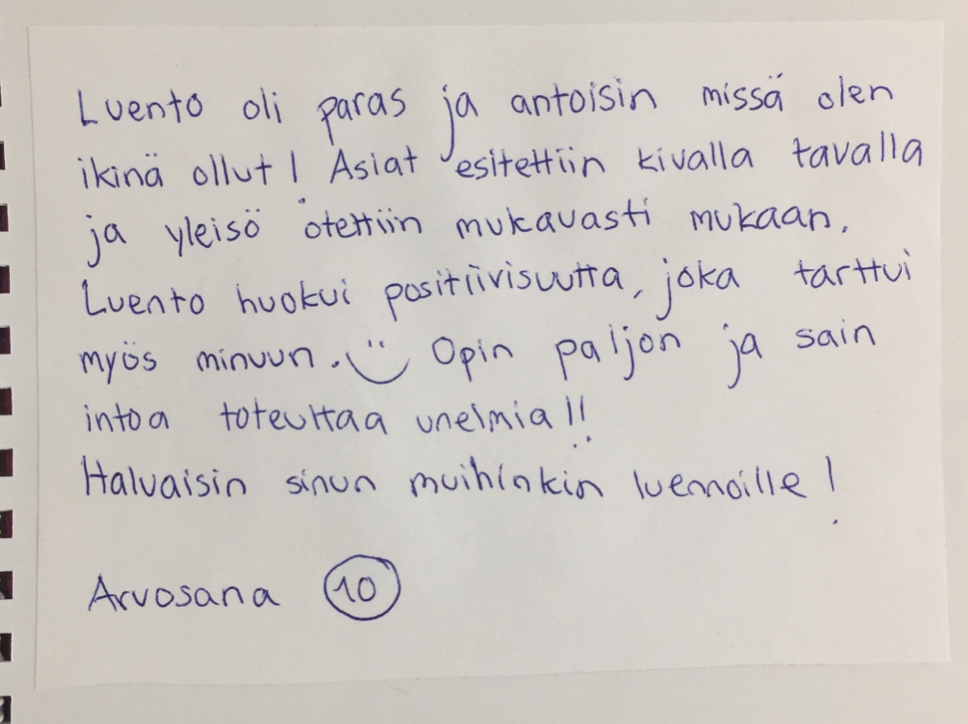 Luento oli paras ja antoisin missä olen
ikinä ollut! Asiat esitettiin kivalla tavalla
ja yleisö otettiin mukavasti mukaan.
Luento huokui positiivisuutta, joka tarttui
myös minuun. Opin paljon ja sain
intoa toteuttaa unelmia!!
Haluaisin sinun muihinkin luennoille!
Arvosana 10